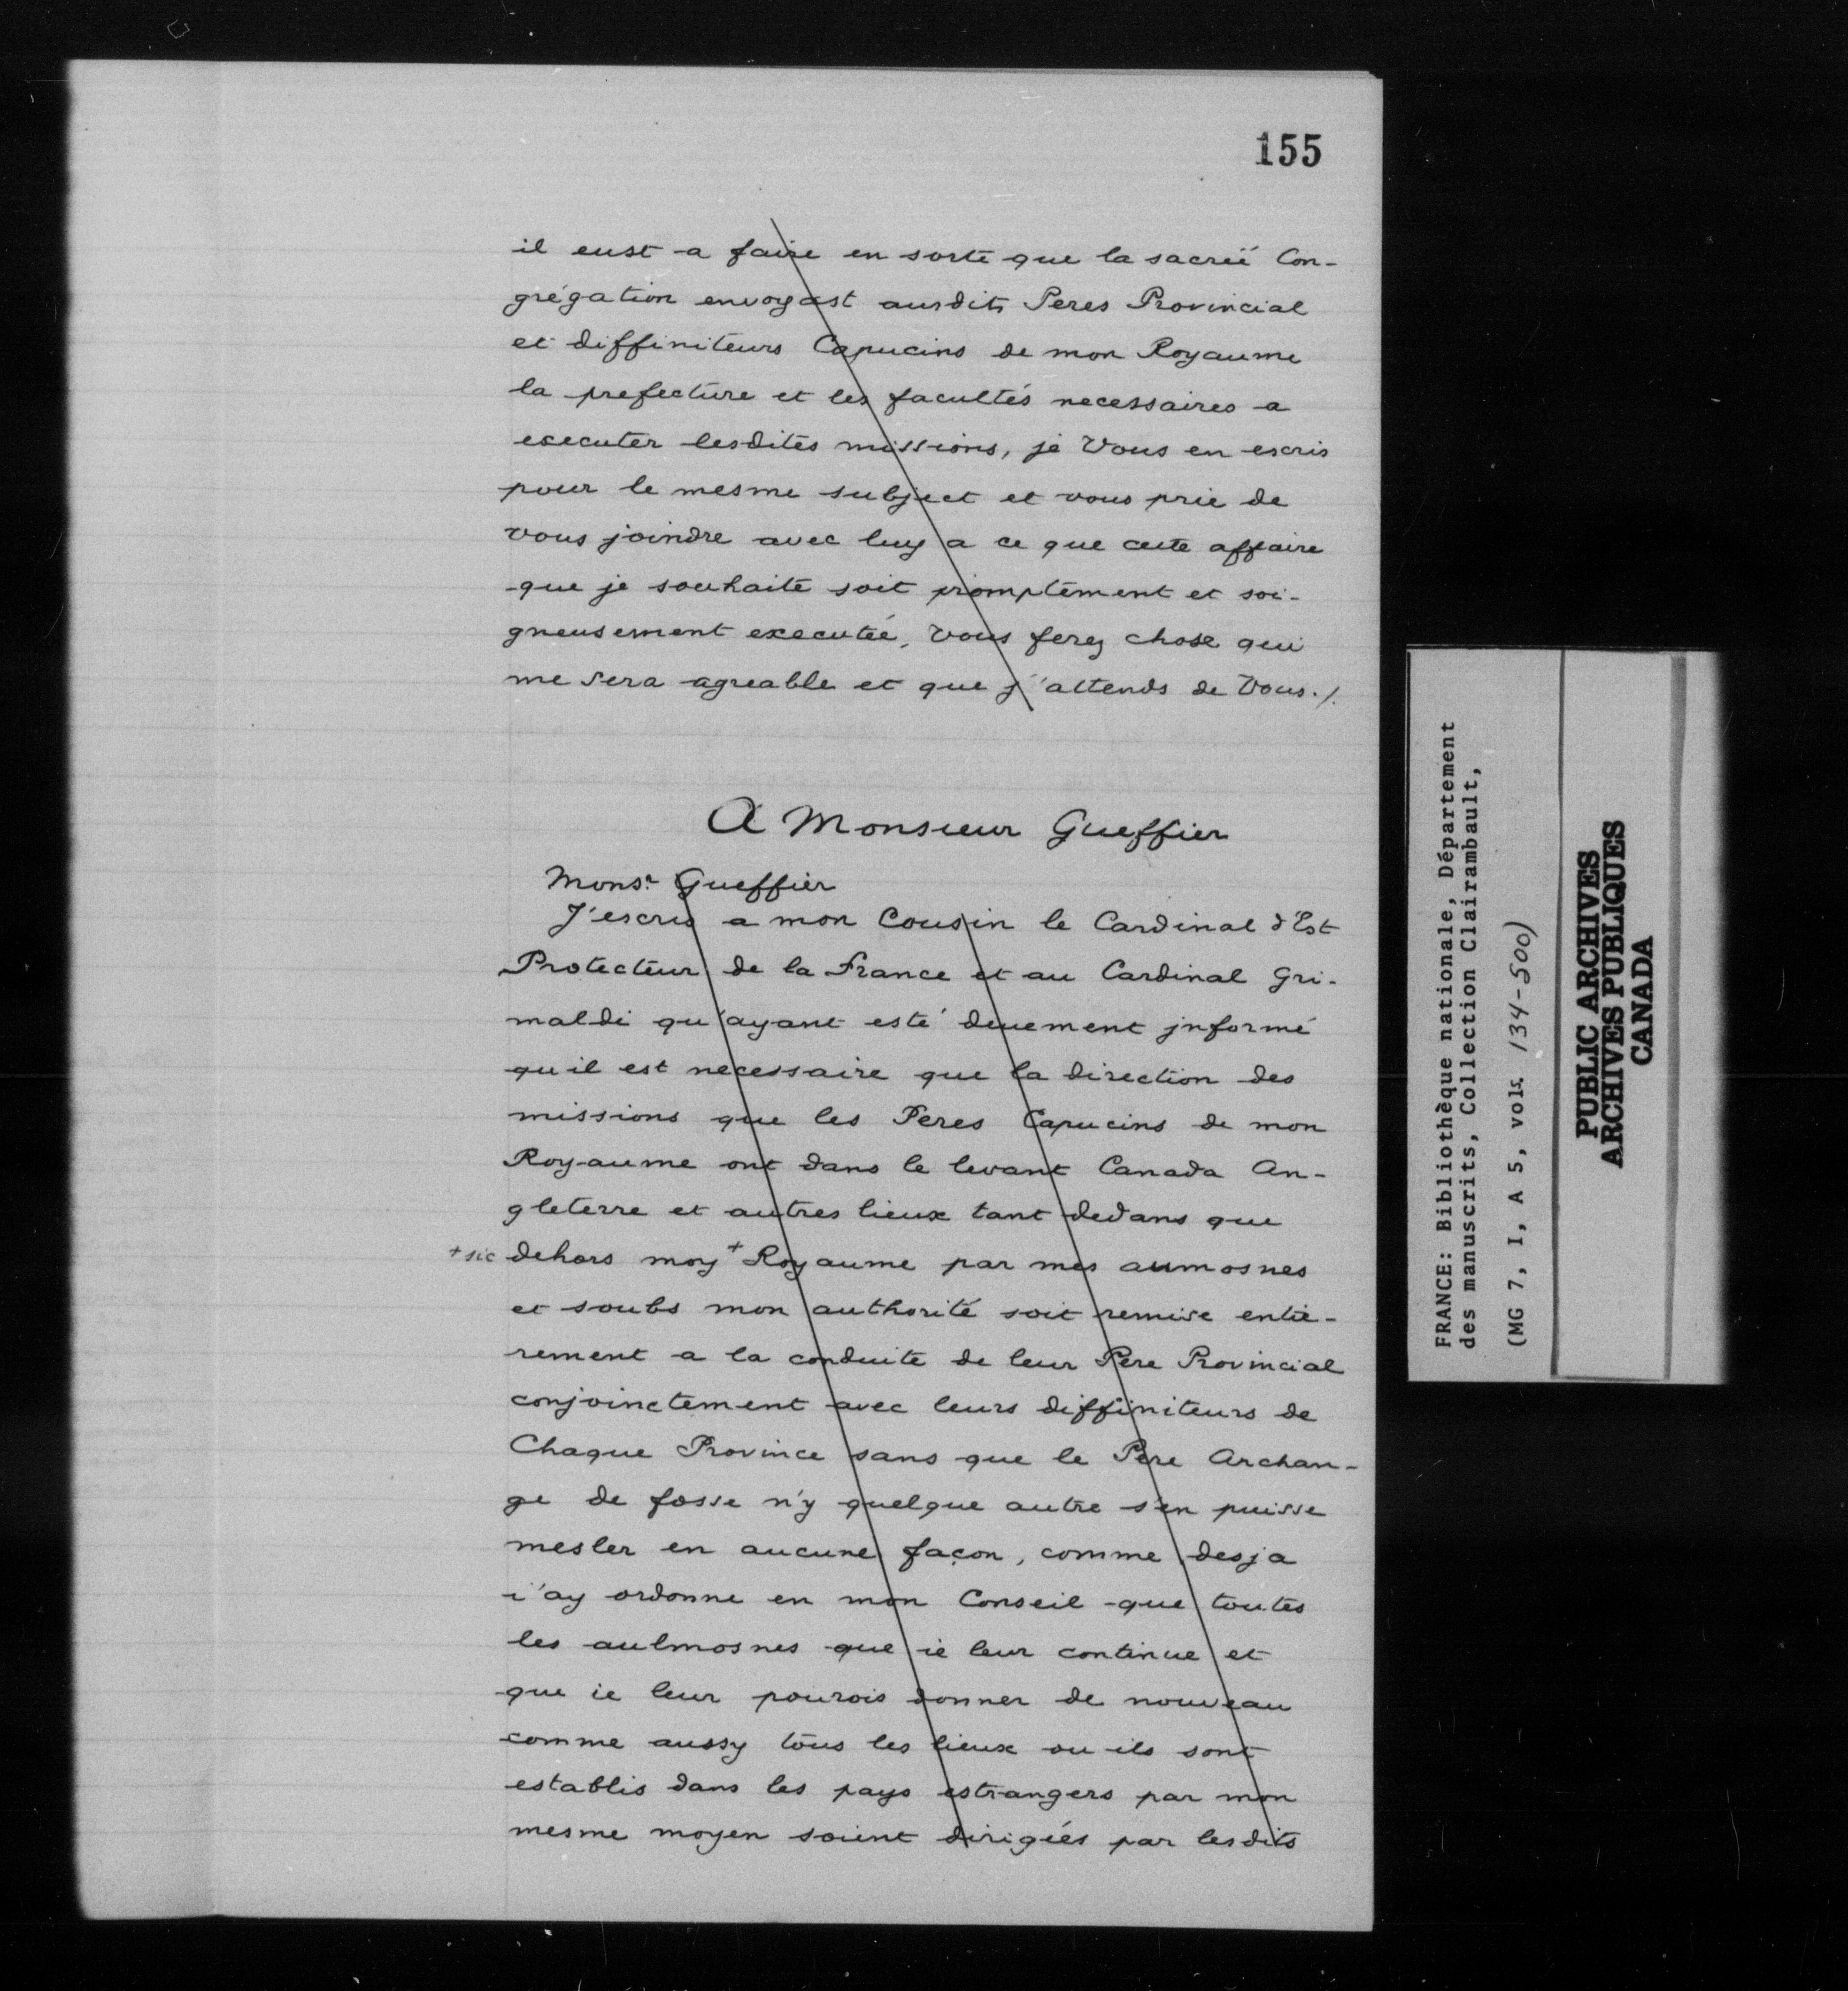 155
il eust a faire en sorte que la sacrée Con-
grégation envoyast ausdits Peres Provincial
et diffiniteurs Capucins de mon Royaume
la prefecture et les facultés necessaires a
executer lesdites missions, je Vous en escris
pour le mesme subject et vous prie de
vous joindre avec luy a ce que cette affaire
que je souhaite soit promptement et soi-
gneusement executée, vous ferez chose qui
me sera agreable et que j'attends de Vous./.
A Monsieur Gueffier
Monsr. Gueffier
J'escris a mon Cousin le Cardinal d'Est
Protecteur de la France et au Cardinal Gri-
maldi qu'ayant esté deuement jnformé
qu il est necessaire que la direction des
missions que les Peres Capucins de mon
Royaume ont dans le levant Canada An-
gleterre et autres lieux tant dedans que
+ sic dehors moy + Royaume par mes aumosnes
et soubs mon authorité soit remise entie-
rement a la conduite de leur Pere Provincial
conjoinctement avec leurs diffiniteurs de
Chaque Province sans que le Pere Archan-
ge de fosse n'y quelque autre s'en puisse
mesler en aucune façon, comme desja
i'ay ordonne en mon Conseil que toutes
les aulmosnes que ie leur continue et
que ie leur pourois donner de nouveau
comme aussy tous les lieux ou ils sont
establis dans les pays estrangers par mon
mesme moyen soient dirigées par lesdits
FRANCE: Bibliothèque nationale, Département
des manuscrits, Collection Clairambault,
(MG 7, I, A 5, vols. 134-500)
PUBLIC ARCHIVES
ARCHIVES PUBLIQUES
CANADA